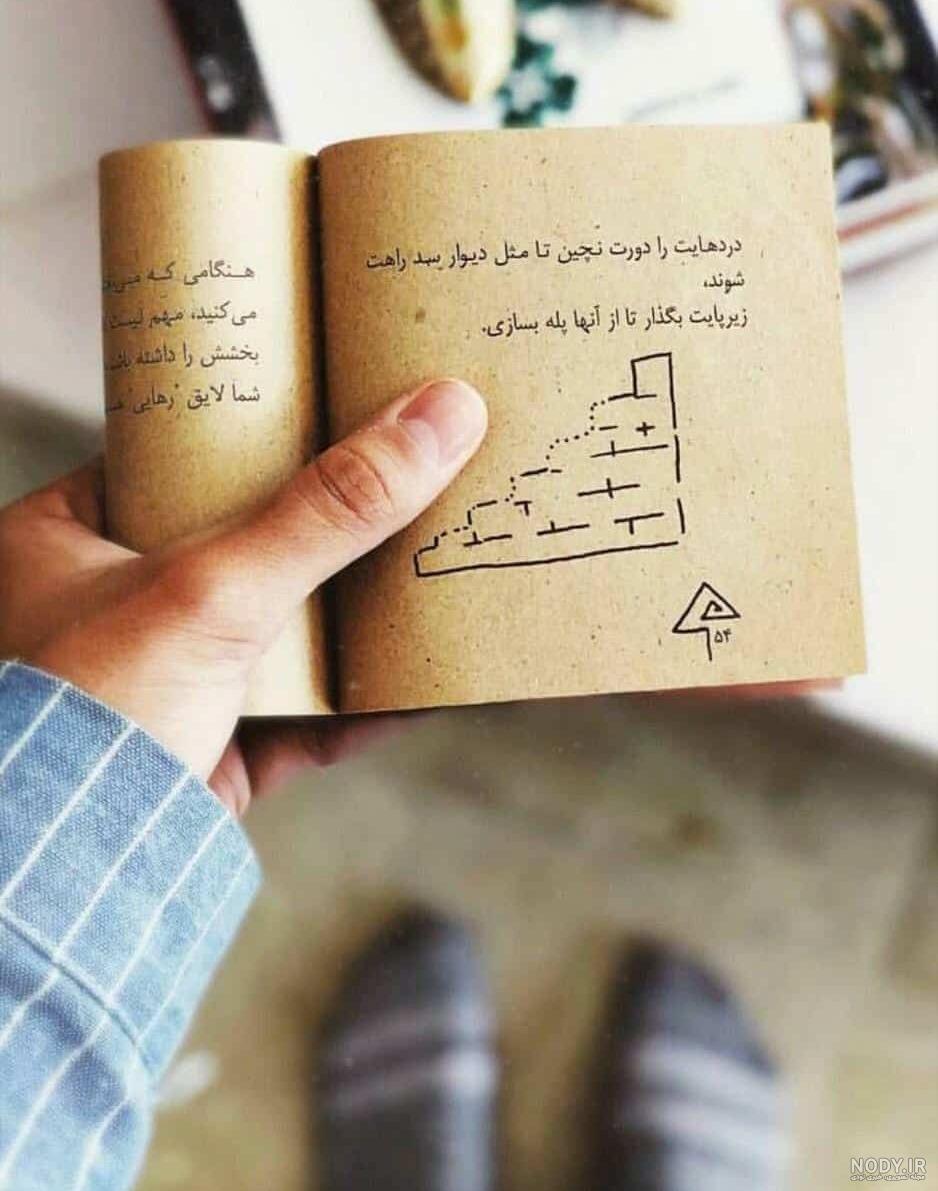 دردهایت را دورت نچین تا مثل دیوار سد راهت
شوند،
زیرپایت بگذار تا از آنها پله بسازی.
۵۴
هنگامی که
می‌کنید، مهم نیست
بخشش را داشته
شما لایق 'رهایی'
NODY.IR